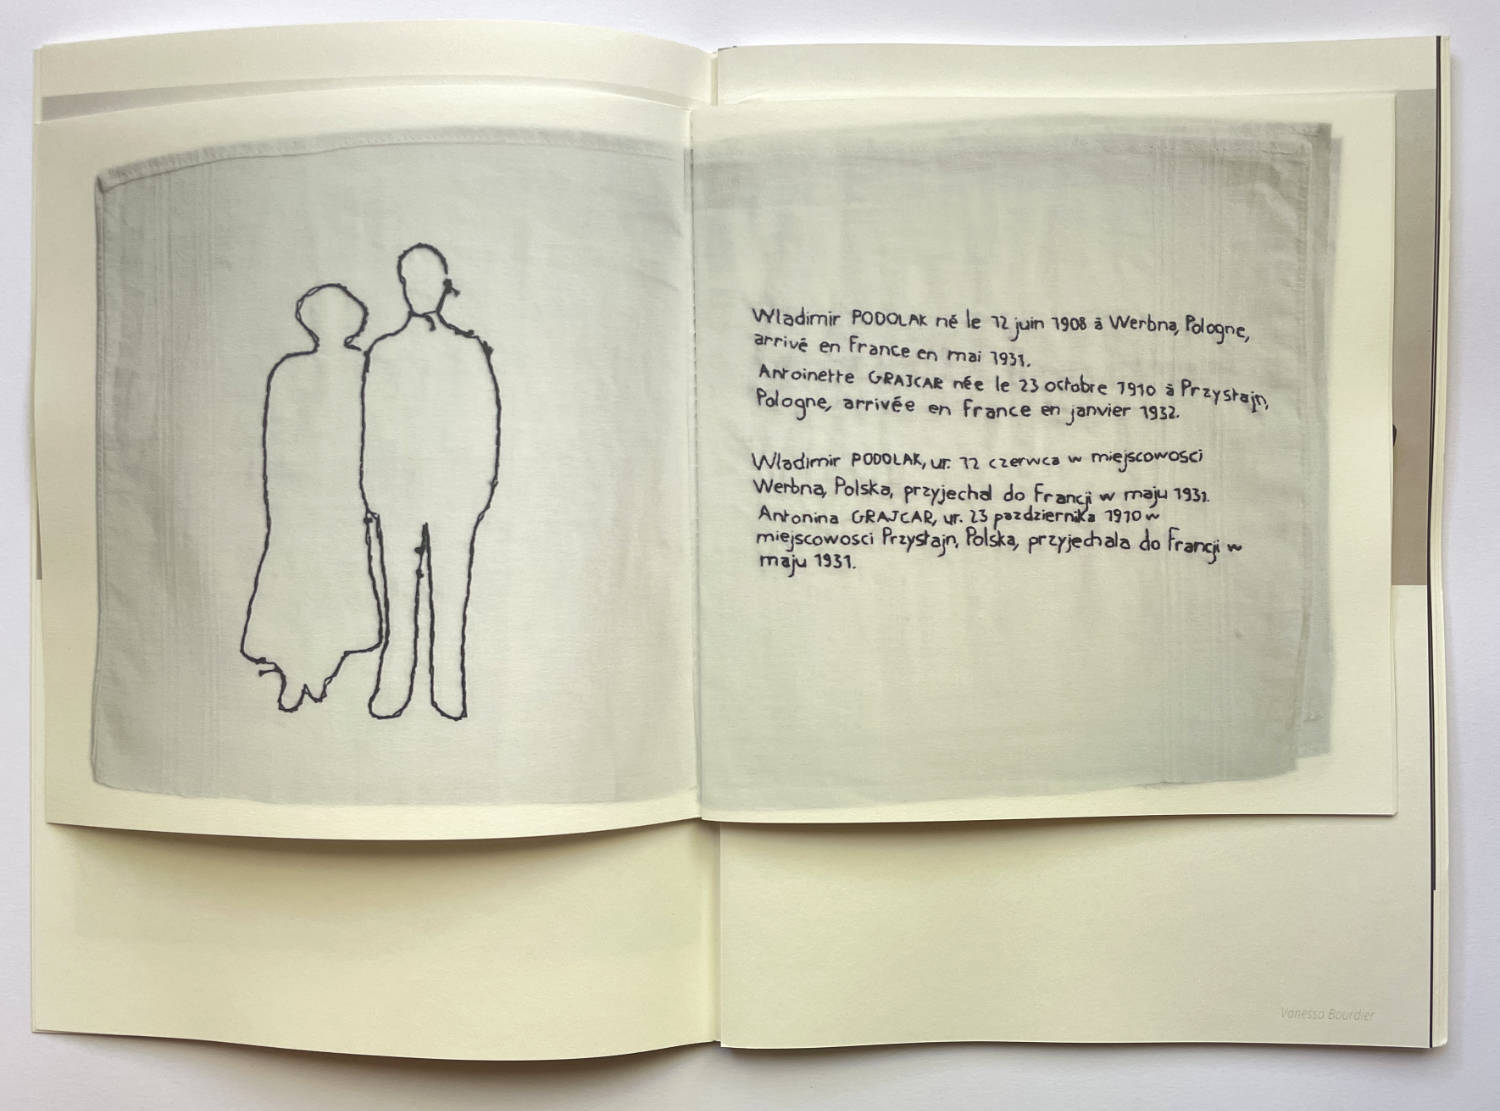 Wladimir PODOLAK né le 12 juin 1908 à Werbna, Pologne,
arrivé en France en mai 1931.
Antoinette GRAJCAR née le 23 octobre 1910 à Przystajn,
Pologne, arrivée en France en janvier 1932.
Wladimir PODOLAK, ur. 12 czerwca w miejscowosci
Werbna, Polska, przyjechal do Francji w maju 1931.
Antonina GRAJCAR, ur. 23 pazdziernika 1910 w
miejscowosci Przystajn, Polska, przyjechala do Francji w
maju 1931.
Vanessa Bourdier